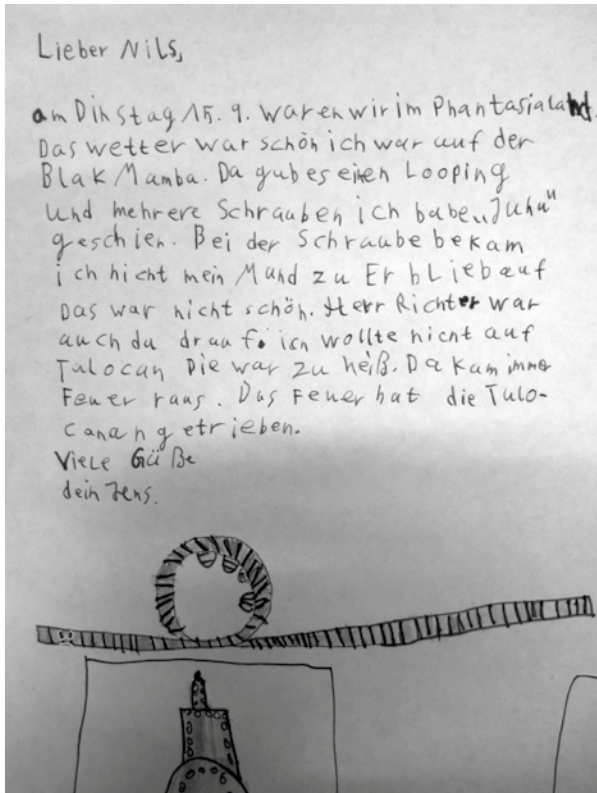 Lieber Nils,
am Dinstag 15.9. waren wir im Phantasialand.
Das wetter war schön ich war auf der
Blak Mamba. Da gub es einen Looping
und mehrere Schrauben ich babe „Juhu"
geschien. Bei der Schraube bekam
ich nicht mein Mund zu Er bLieb auf
Das war nicht schön. Herr Richter war
auch da drauf. ich wollte nicht auf
Tulocan Die war zu heiß. Da kam immer
Feuer raus. Das Feuer hat die Tulo-
can angetrieben.
Viele Güße
dein Jens.